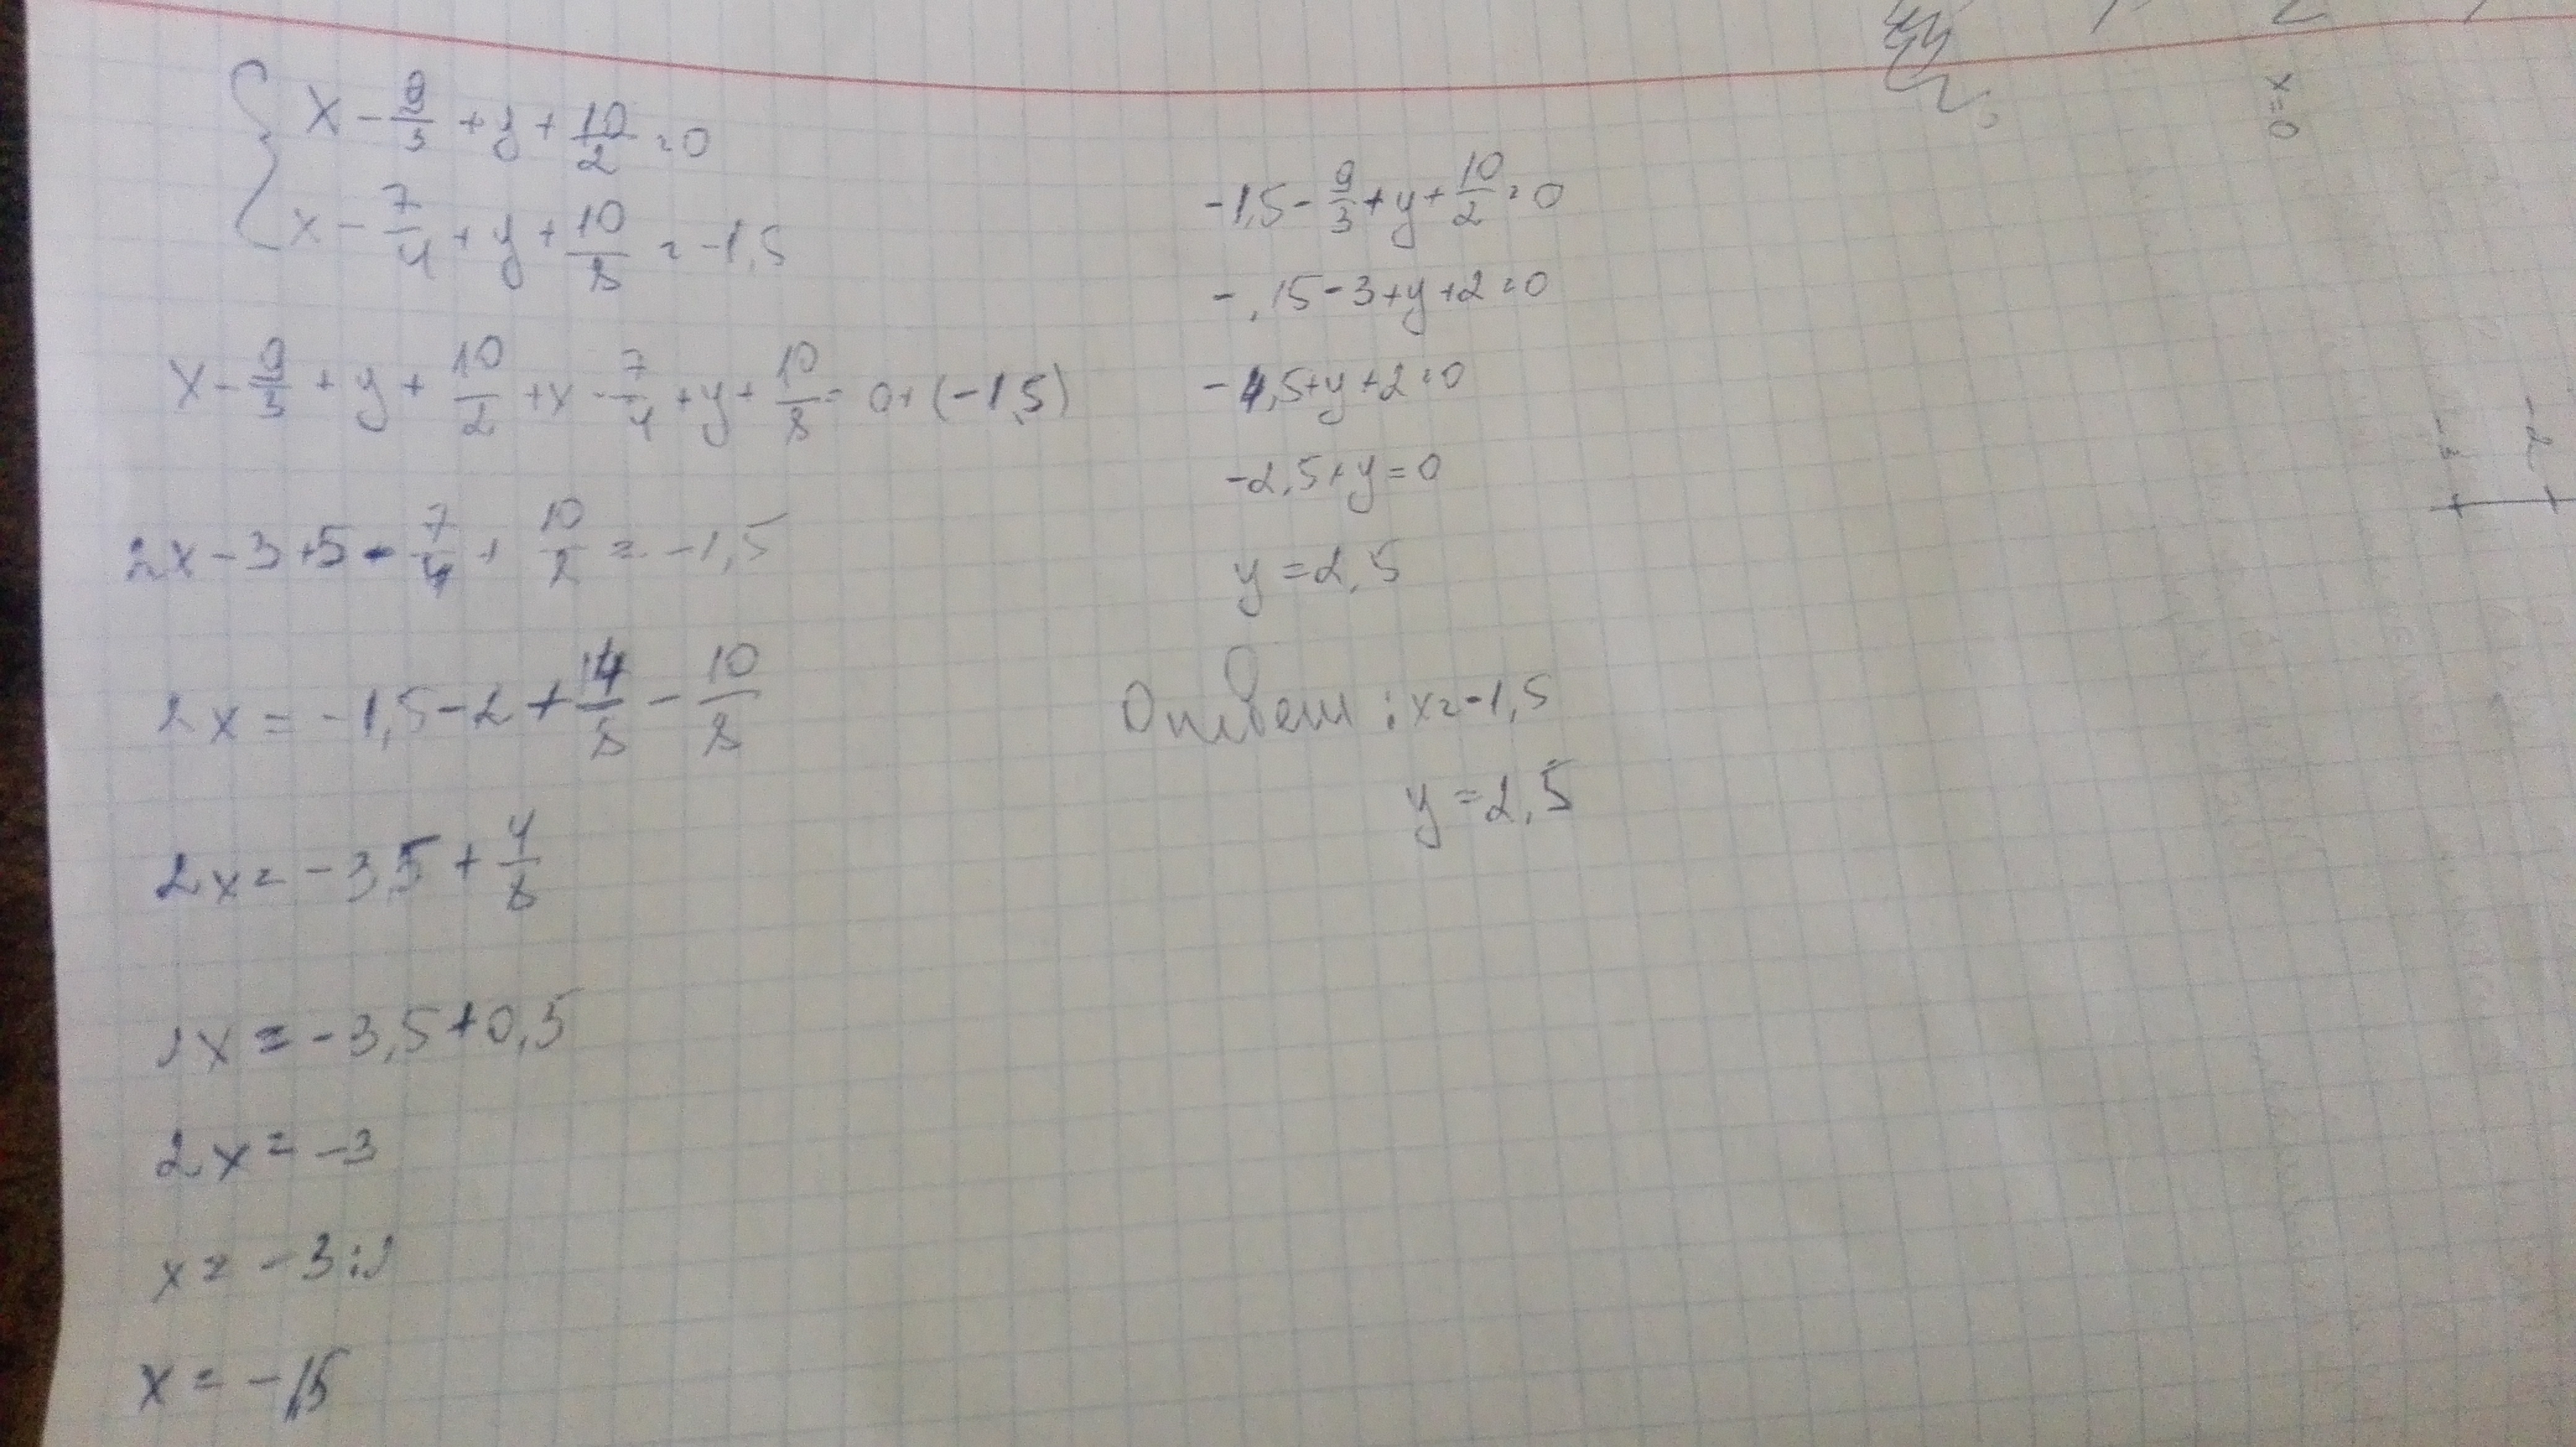 x - 9/3 + y + 10/2 = 0
x - 7/4 + y + 10/8 = -1,5
x - 9/3 + y + 10/2 + x - 7/4 + y + 10/8 = 0 + (-1,5)
2x - 3 + 5 - 7/4 + 10/2 = -1,5
2x = -1,5 - 2 + 14/8 - 10/8
2x = -3,5 + 4/8
2x = -3,5 + 0,5
2x = -3
x = -3:2
x = -1,5
-1,5 - 9/3 + y + 10/2 = 0
-,15 - 3 + y + 2 = 0
-4,5 + y + 2 = 0
-2,5 + y = 0
y = 2,5
Ответ: x = -1,5
y = 2,5
x=0